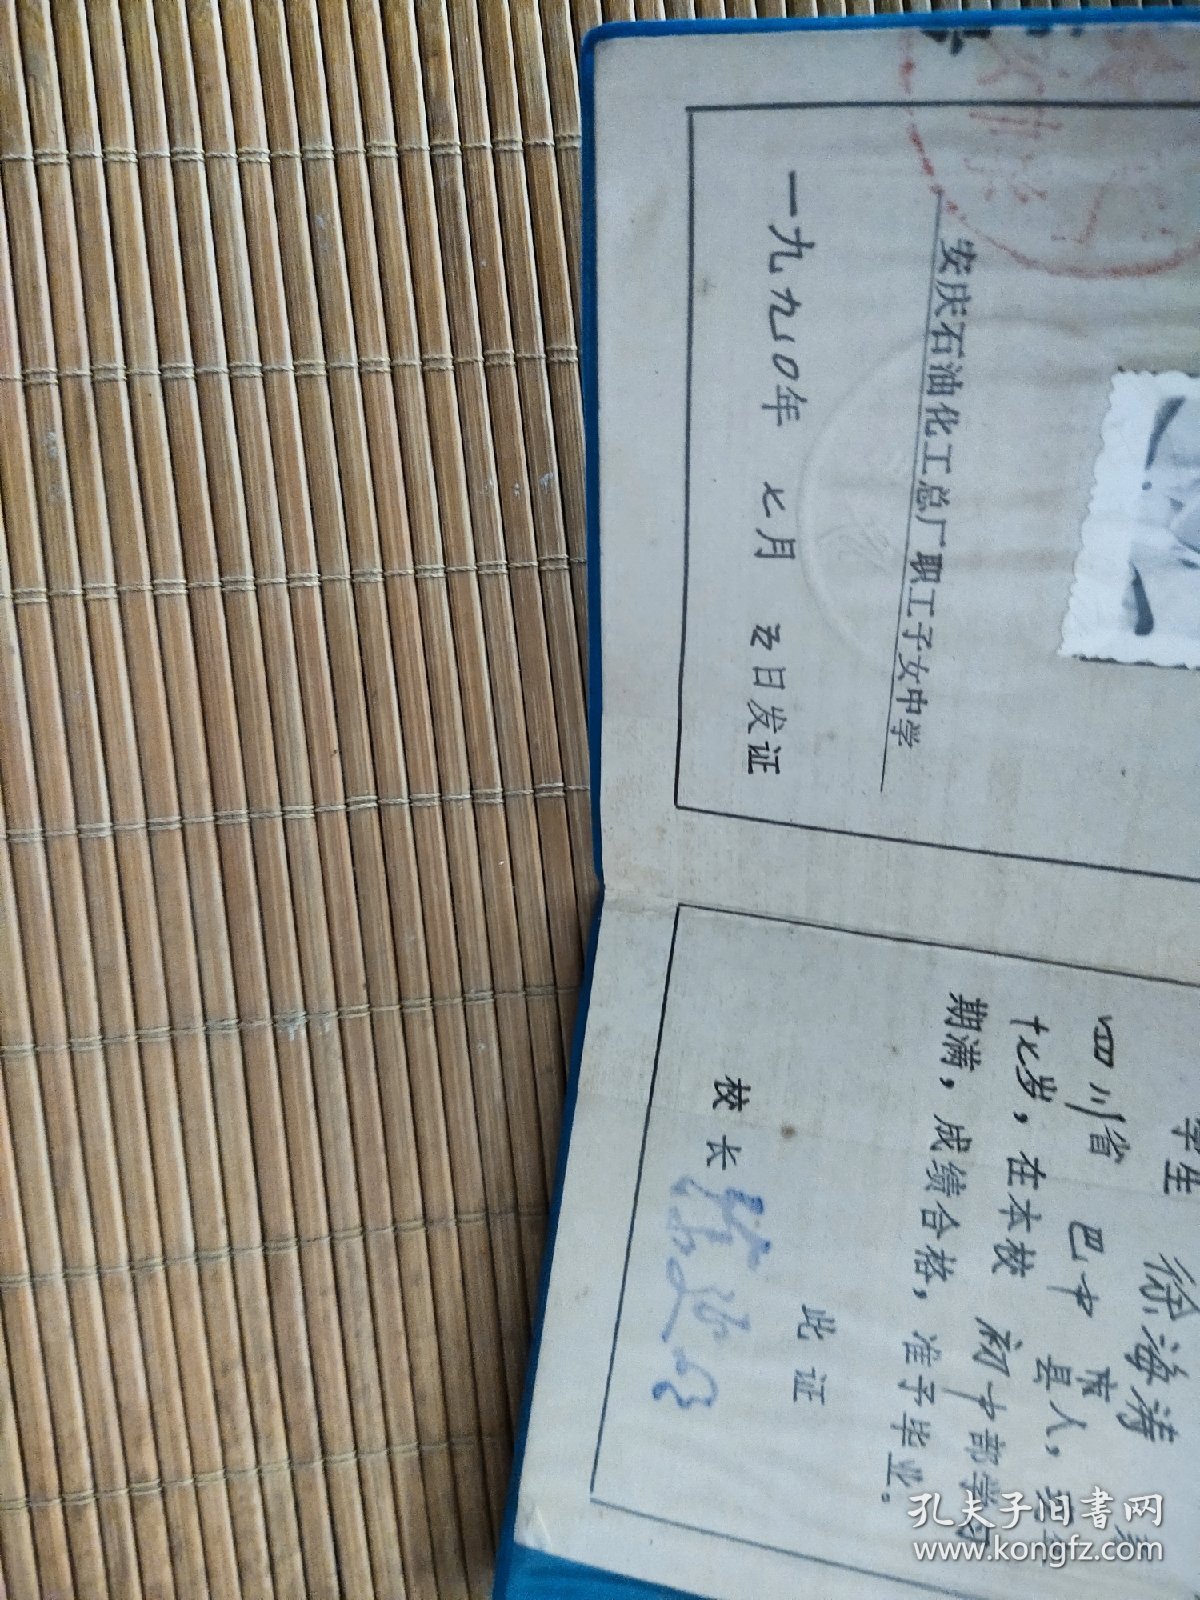 安庆石油化工总厂职工子女中学
一九九〇年 七月 五日发证
学生 徐海涛
四川省 巴中 县人,
十七岁，在本校 初中部学习
期满，成绩合格，准予毕业。
此证
校长
孔夫子旧书网
www.kongfz.com